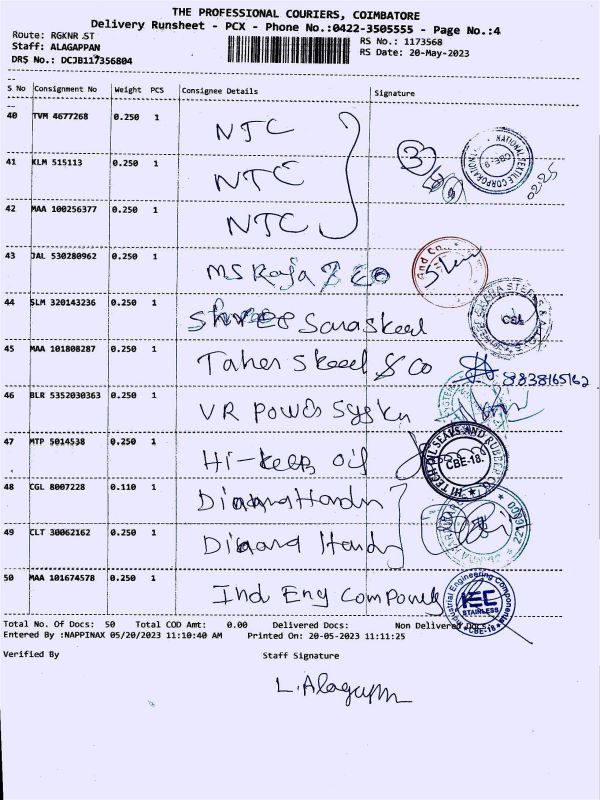 THE PROFESSIONAL COURIERS, COIMBATORE
Delivery Runsheet - PCX - Phone No.:0422-3505555 - Page No.:4
Route: RGKNR ST
RS No.: 1173568
Staff: ALAGAPPAN
RS Date: 20-May-2023
DRS No.: DCJB117356804
S No Consignment No Weight PCS Consignee Details Signature
40 TVM 4677268 0.250 1 NTC
41 KLM 515113 0.250 1 NTC
42 MAA 100256377 0.250 1 NTC
NATIONAL TEXTILE CORPORATION
43 JAL 530280962 0.250 1 MS Raja & Co
44 SLM 320143236 0.250 1 Shree Sara Steel
45 MAA 101808287 0.250 1 Taher Steel & Co
8838165162
46 BLR 5352030363 0.250 1 VR Power System
47 MTP 5014538 0.250 1 Hi-tech oil
HI TECH OIL SEALS AND RUBBER
CBE-18.
48 CGL 8007228 0.110 1
49 CLT 30062162 0.250 1
50 MAA 101674578 0.250 1 Ind Eng Compone
Industrial Engineering Components
IEC
STAINLESS
CBE-18
Total No. Of Docs: 50 Total COD Amt: 0.00 Delivered Docs: Non Delivered Docs:
Entered By :NAPPINAX 05/20/2023 11:10:40 AM Printed On: 20-05-2023 11:11:25
Verified By Staff Signature
L. Alagappan